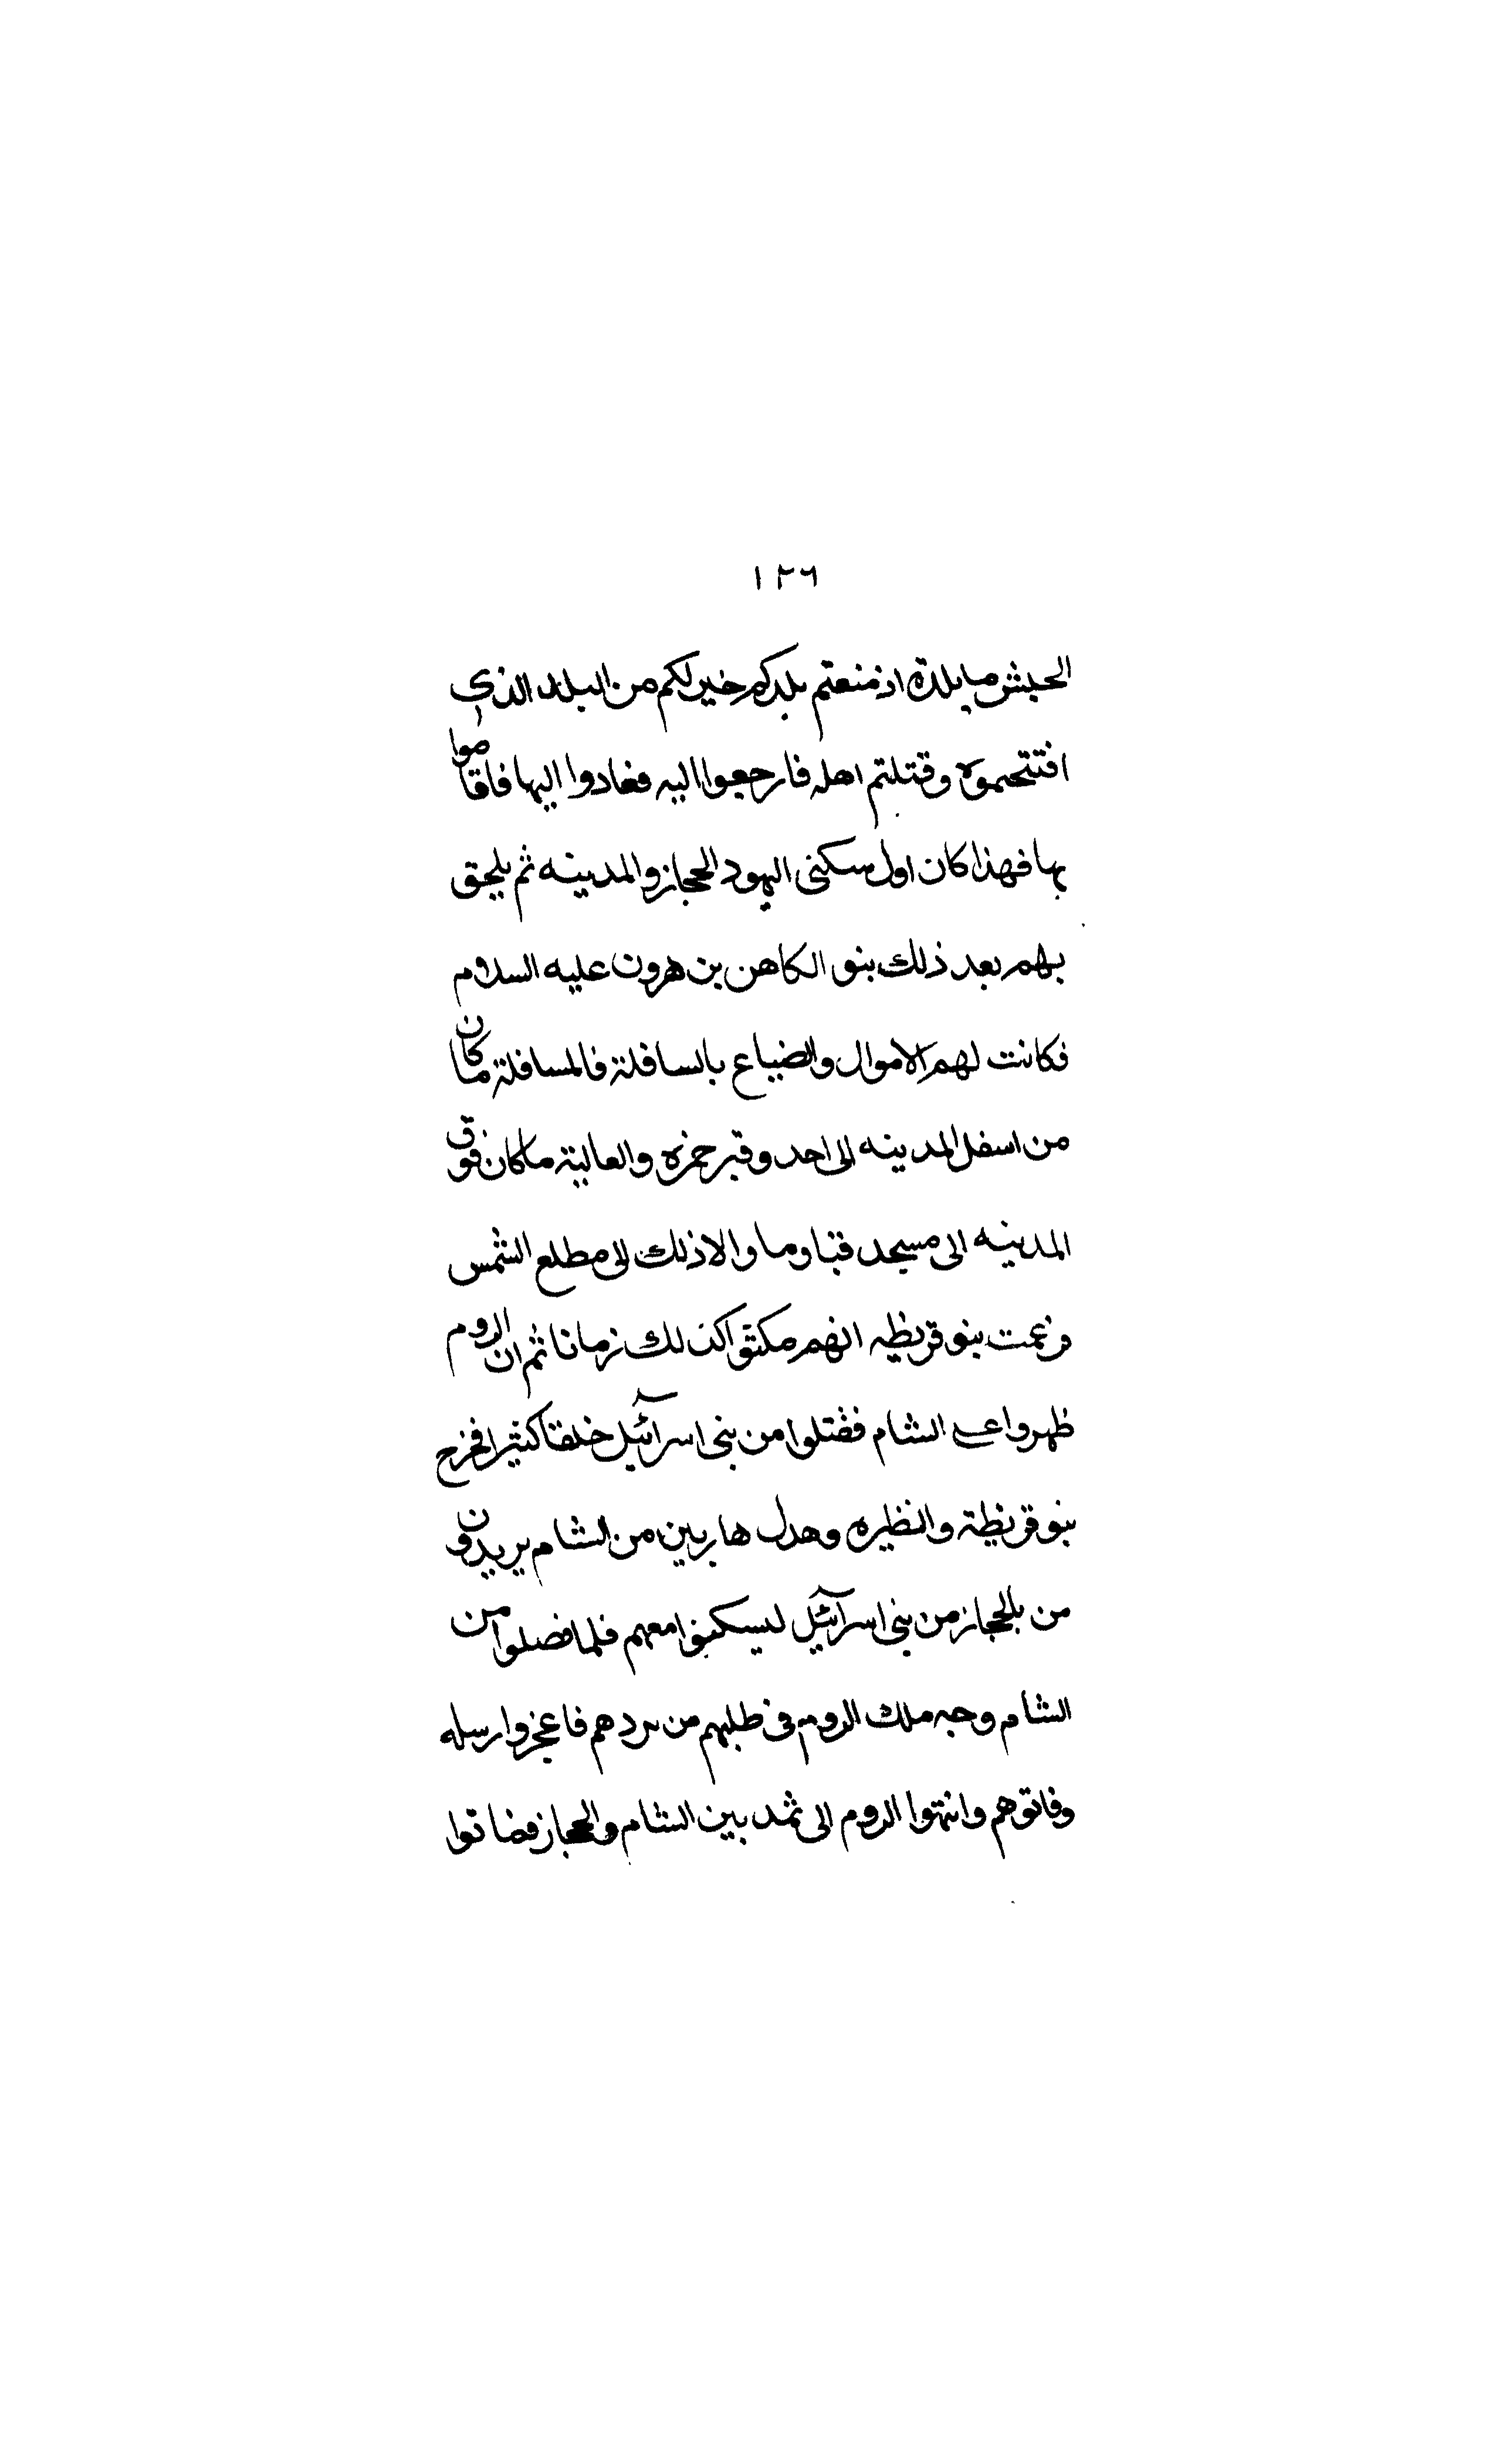 ١٢٦
الحبش ما بلدة اذ منعتم بلدكم خير لكم من البلد الذي
افتتحتموه وقتلتم اهله فارجعوا اليه فعادوا اليها فاقاموا
بها فهذا كان اول سكنى اليهود الحجاز والمدينه ثم يلحق
بهم بعد ذلك بنو الكاهن بن هرون عليه السلام
فكانت لهم الاموال والضياع بالسافلة فالمسافلة ما كان
من اسفل المدينه الى احد وقبر حمزه والعالية ما كان فوق
المدينه الى مسجد قبا وما والا ذلك الى مطلع الشمس
وزعمت بنو قريظه انهم مكثوا كذلك زمانا ثم ان الروم
ظهروا على الشام فقتلوا من بنى اسرآئيل خلقا كثيرا فخرج
بنو قريظة والنظيره وهدل هاربين من الشام يريدون
من بالحجاز من بنى اسرآئيل ليسكنوا معهم فلما فصلوا من
الشام وجه ملك الروم فى طلبهم من يردهم فاعجزوا رسله
وفاتوهم وانتهوا الروم الى ثمد بين الشام والحجاز فماتوا